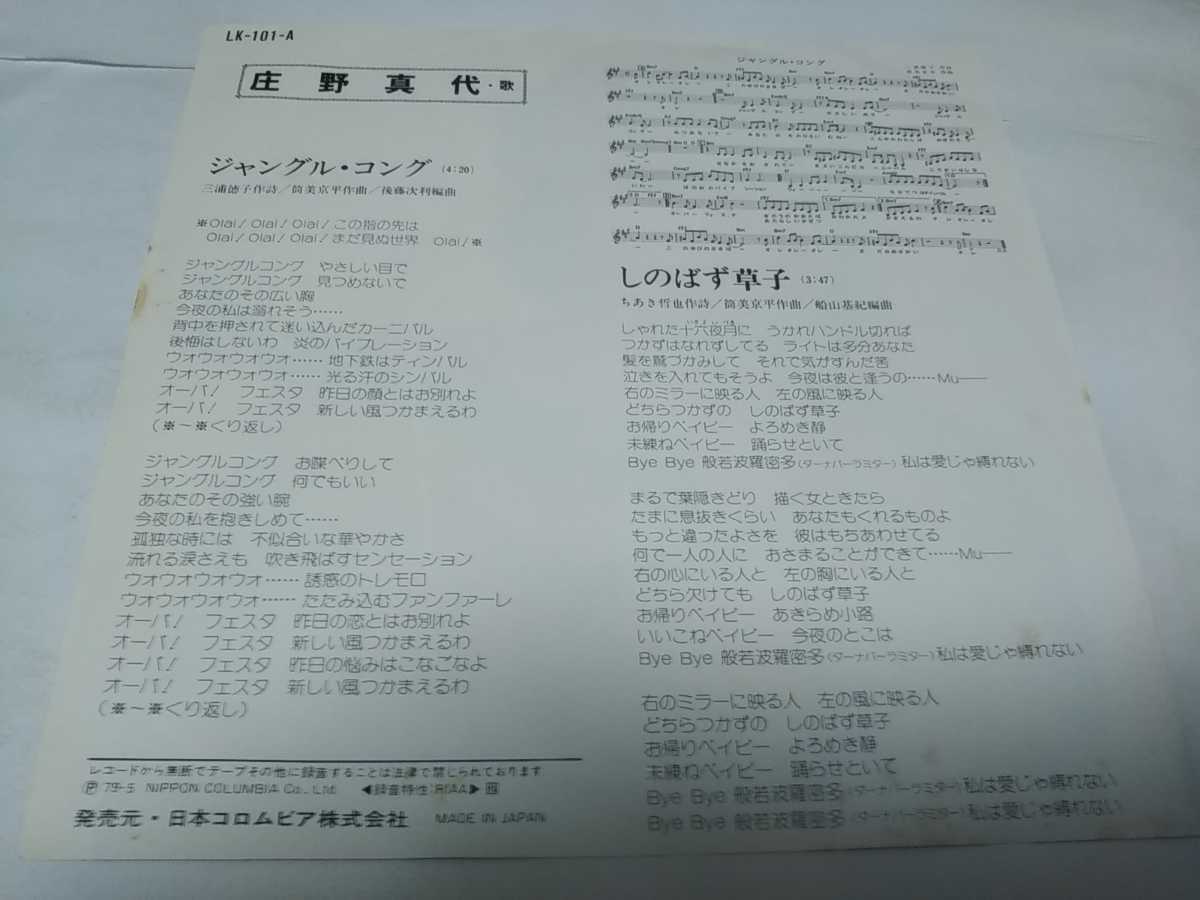 LK-101-A
庄野真代・歌
ジャングル・コング (4:20)
三浦徳子作詩/筒美京平作曲/後藤次利編曲
※Olai! Olai! Olai! この指の先は
Olai! Olai! Olai! まだ見ぬ世界 Olai! ※
ジャングルコング やさしい目で
ジャングルコング 見つめないで
あなたのその広い胸
今夜の私は溺れそう……
背中を押されて迷い込んだカーニバル
後悔はしないわ 炎のバイブレーション
ウオウオウオウオ……地下鉄はティンバル
ウオウオウオウオ……光る汗のシンバル
オーパ! フェスタ 昨日の顔とはお別れよ
オーパ! フェスタ 新しい風つかまえるわ
(※~※くり返し)
ジャングルコング お喋べりして
ジャングルコング 何でもいい
あなたのその強い腕
今夜の私を抱きしめて……
孤独な時には 不似合いな華やかさ
流れる涙さえも 吹き飛ばすセンセーション
ウオウオウオウオ……誘惑のトレモロ
ウオウオウオウオ……たたみ込むファンファーレ
オーパ! フェスタ 昨日の恋とはお別れよ
オーパ! フェスタ 新しい風つかまえるわ
オーパ! フェスタ 昨日の悩みはこなごなよ
オーパ! フェスタ 新しい風つかまえるわ
(※~※くり返し)
レコードから無断でテープその他に録音することは法律で禁じられております
Ⓟ79-5 NIPPON COLUMBIA Co., Ltd. ◀録音特性:RIAA▶
発売元・日本コロムビア株式会社 MADE IN JAPAN
ジャングル・コング
しのばず草子 (3:47)
ちあき哲也作詩/筒美京平作曲/船山基紀編曲
しゃれた十六夜月に うかれハンドル切れば
つかずはなれずしてる ライトは多分あなた
髪を鷲づかみして それで気がすんだ筈
泣きを入れてもそうよ 今夜は彼と逢うの……Mu──
右のミラーに映る人 左の風に映る人
どちらつかずの しのばず草子
お帰りベイビー よろめき静
未練ねベイビー 踊らせといて
Bye Bye 般若波羅密多(ターナパーラミター)私は愛じゃ縛れない
まるで葉隠きどり 描く女ときたら
たまに息抜きくらい あなたもくれるものよ
もっと違ったよさを 彼はもちあわせてる
何で一人の人に おさまることができて……Mu──
右の心にいる人と 左の胸にいる人と
どちら欠けても しのばず草子
お帰りベイビー あきらめ小路
いいこねベイビー 今夜のとこは
Bye Bye 般若波羅密多(ターナパーラミター)私は愛じゃ縛れない
右のミラーに映る人 左の風に映る人
どちらつかずの しのばず草子
お帰りベイビー よろめき静
未練ねベイビー 踊らせといて
Bye Bye 般若波羅密多(ターナパーラミター)私は愛じゃ縛れない
Bye Bye 般若波羅密多(ターナパーラミター)私は愛じゃ縛れない